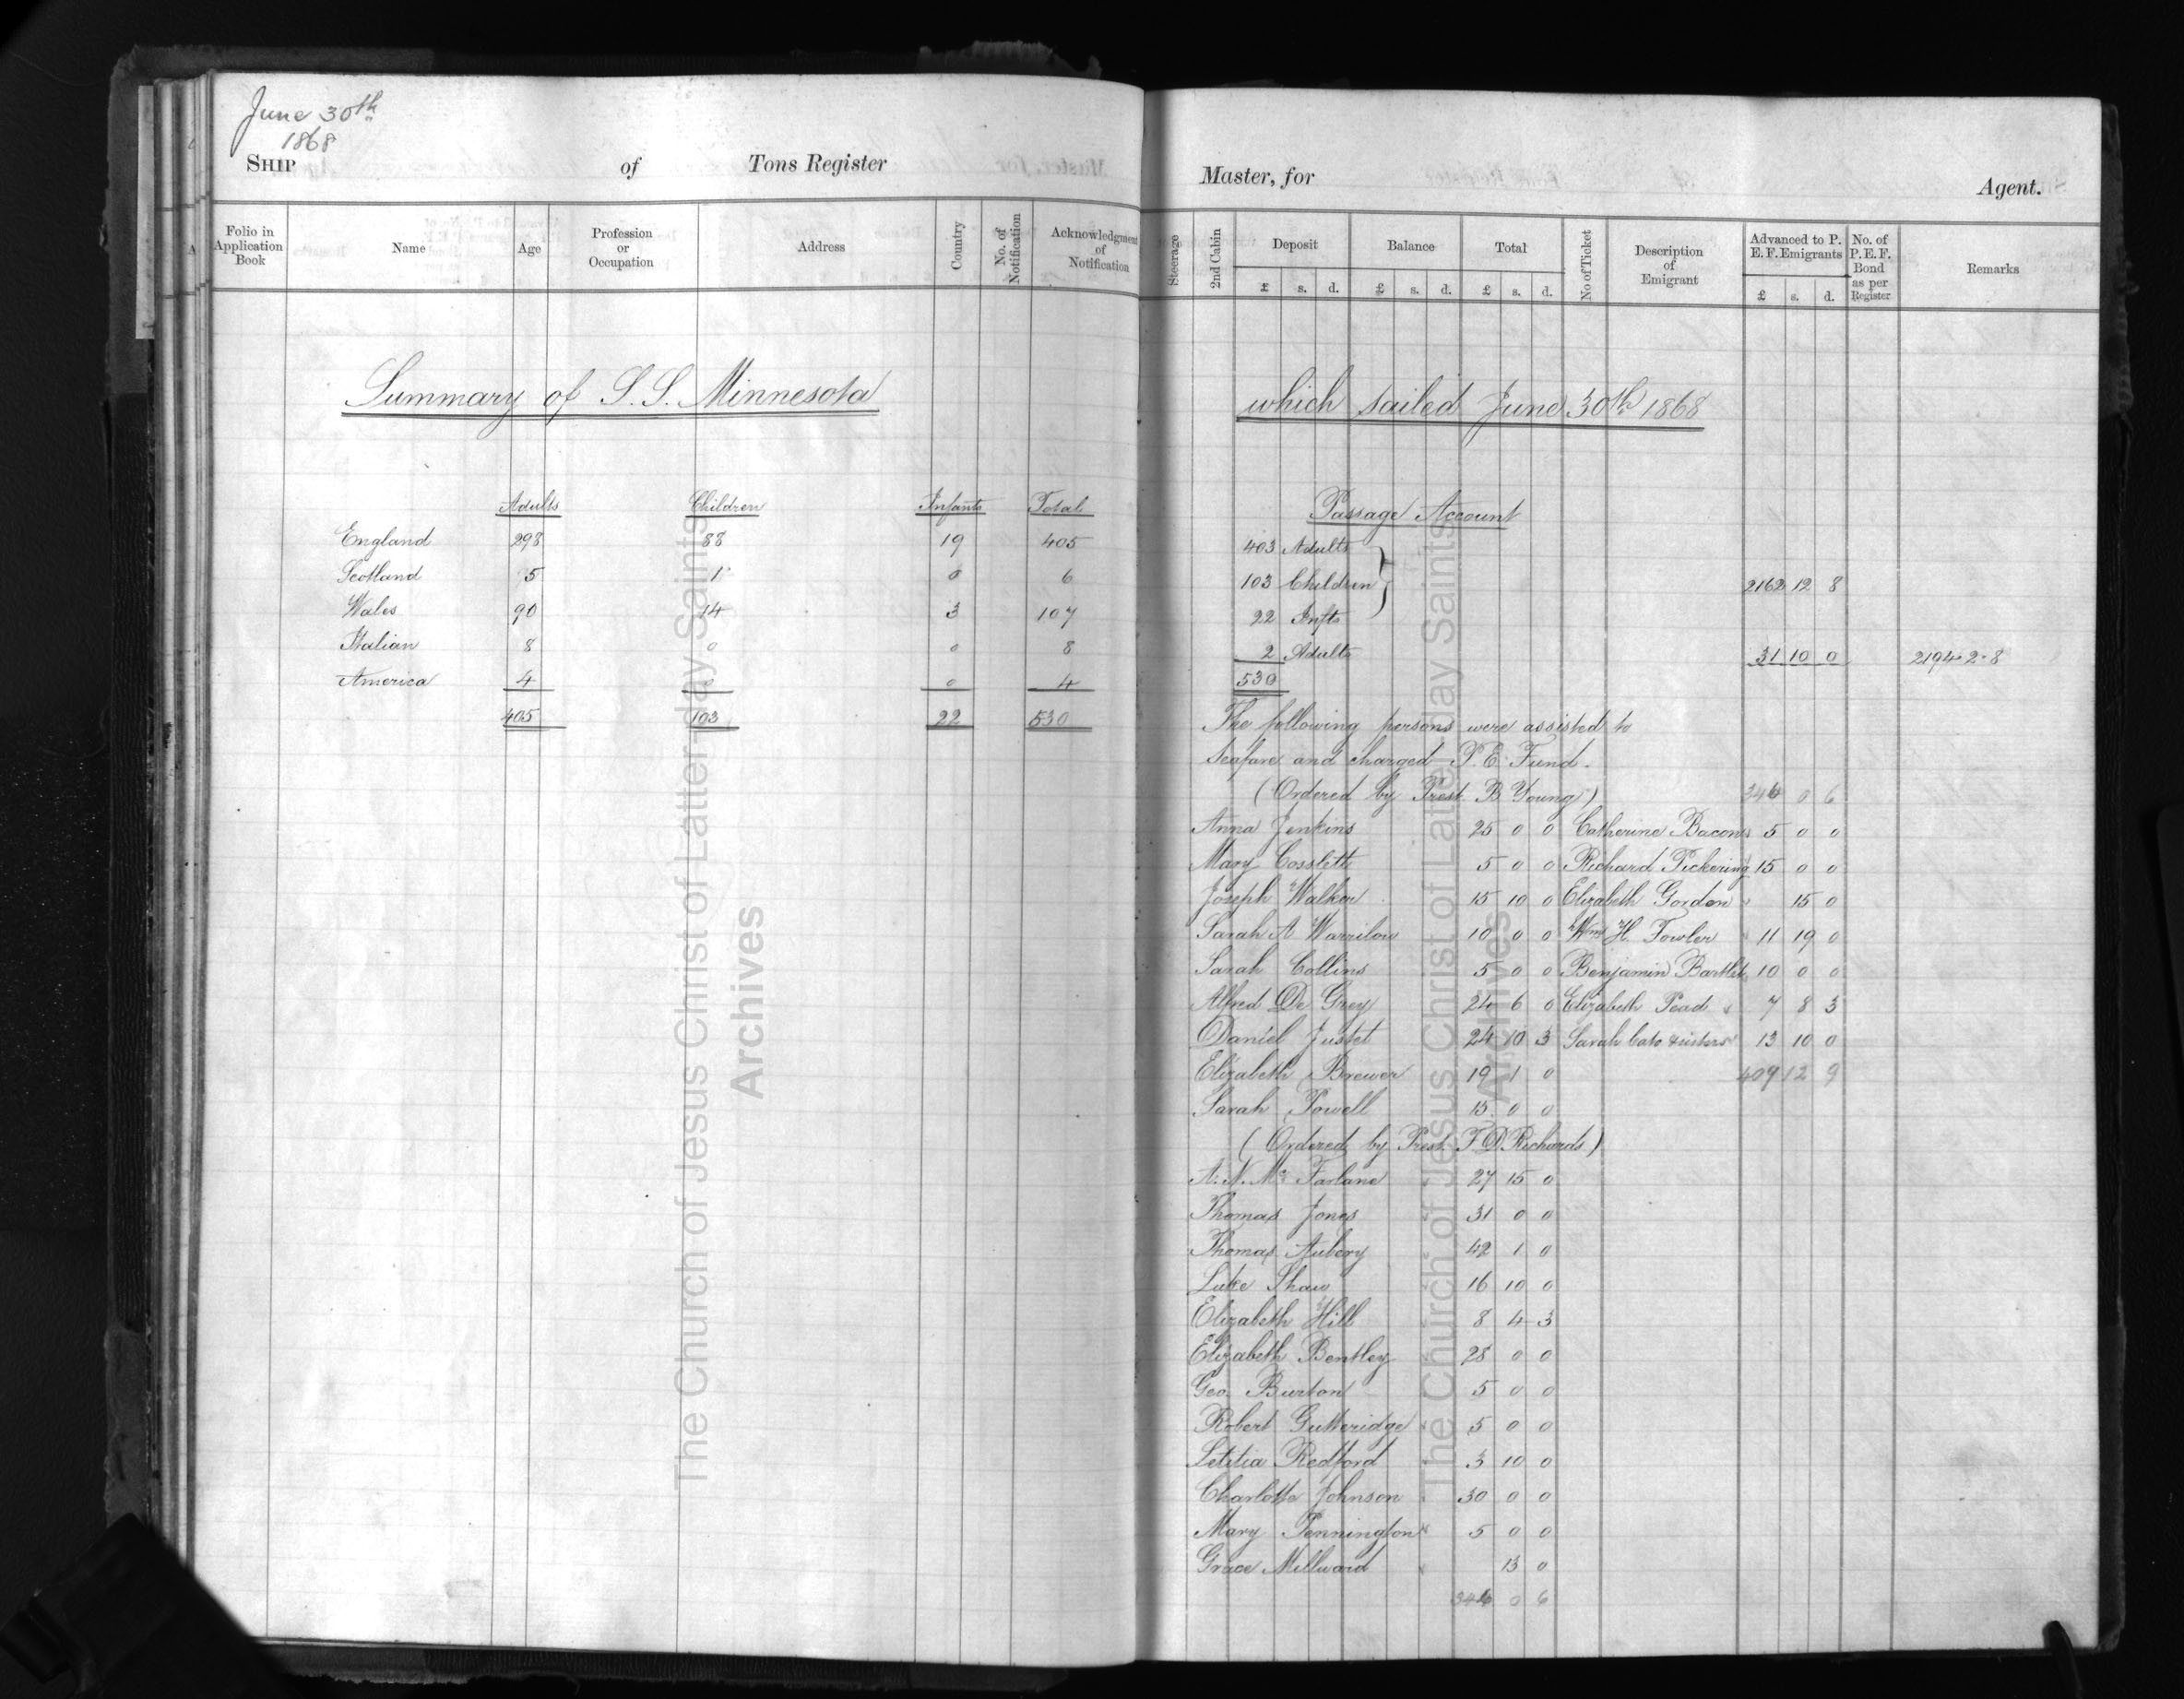 June 30th
1868
SHIP of Tons Register
Folio in Application Book Name Age Profession or Occupation Address Country No. of Notification Acknowledgment of Notification
Summary of S.S. Minnesota
Adults Children Infants Total
England 298 88 19 405
Scotland 5 1 0 6
Wales 90 14 3 107
Italian 8 0 0 8
America 4 0 0 4
405 103 22 530
The Church of Jesus Christ of Latter-day Saints
Archives
Master, for Agent.
Steerage 2nd Cabin Deposit Balance Total No of Ticket Description of Emigrant Advanced to P. E. F. Emigrants No. of P.E.F. Bond as per Register Remarks
£ s. d. £ s. d. £ s. d. £ s. d.
which sailed June 30th 1868
Passage Account
403 Adults
103 Children 2162 12 8
22 Infts
2 Adults 31 10 0 2194 2 8
530
The following persons were assisted to
Seafare and charged P. E. Fund.
(Ordered by Prest. B Young) 346 0 6
Anna Jenkins 25 0 0 Catherine Bacon 5 0 0
Mary Cosslett 5 0 0 Richard Pickering 15 0 0
Joseph Walker 15 10 0 Elizabeth Gordon 15 0
Sarah A Warrilow 10 0 0 Wm H. Fowler 11 19 0
Sarah Collins 5 0 0 Benjamin Bartlet 10 0 0
Alfred De Grey 24 6 0 Elizabeth Pead 7 8 3
Daniel Justet 24 10 3 Sarah Cato & sisters 13 10 0
Elizabeth Brewer 19 1 0 409 12 9
Sarah Powell 15 0 0
(Ordered by Prest. F D Richards)
A. N. Mc Farlane 27 15 0
Thomas Jones 31 0 0
Thomas Aubery 42 1 0
Luke Shaw 16 10 0
Elizabeth Hill 8 4 3
Elizabeth Bentley 28 0 0
Geo. Burton 5 0 0
Robert Gutteridge 5 0 0
Letitia Redford 3 10 0
Charlotte Johnson 30 0 0
Mary Pennington 5 0 0
Grace Millward 13 0
346 0 6
The Church of Jesus Christ of Latter-day Saints
Archives